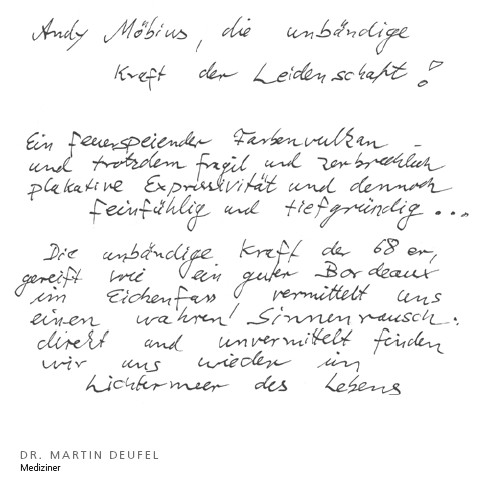 Andy Möbius, die unbändige
Kraft der Leidenschaft!
Ein feuerspeiender Farbenvulkan –
und trotzdem fragil und zerbrechlich
plakative Expressivität und dennoch
feinfühlig und tiefgründig...
Die unbändige Kraft der 68er,
gereift wie ein guter Bordeaux
im Eichenfass vermittelt uns
einen wahren Sinnenrausch:
direkt und unvermittelt finden
wir uns wieder im
Lichtermeer des Lebens
DR. MARTIN DEUFEL
Mediziner